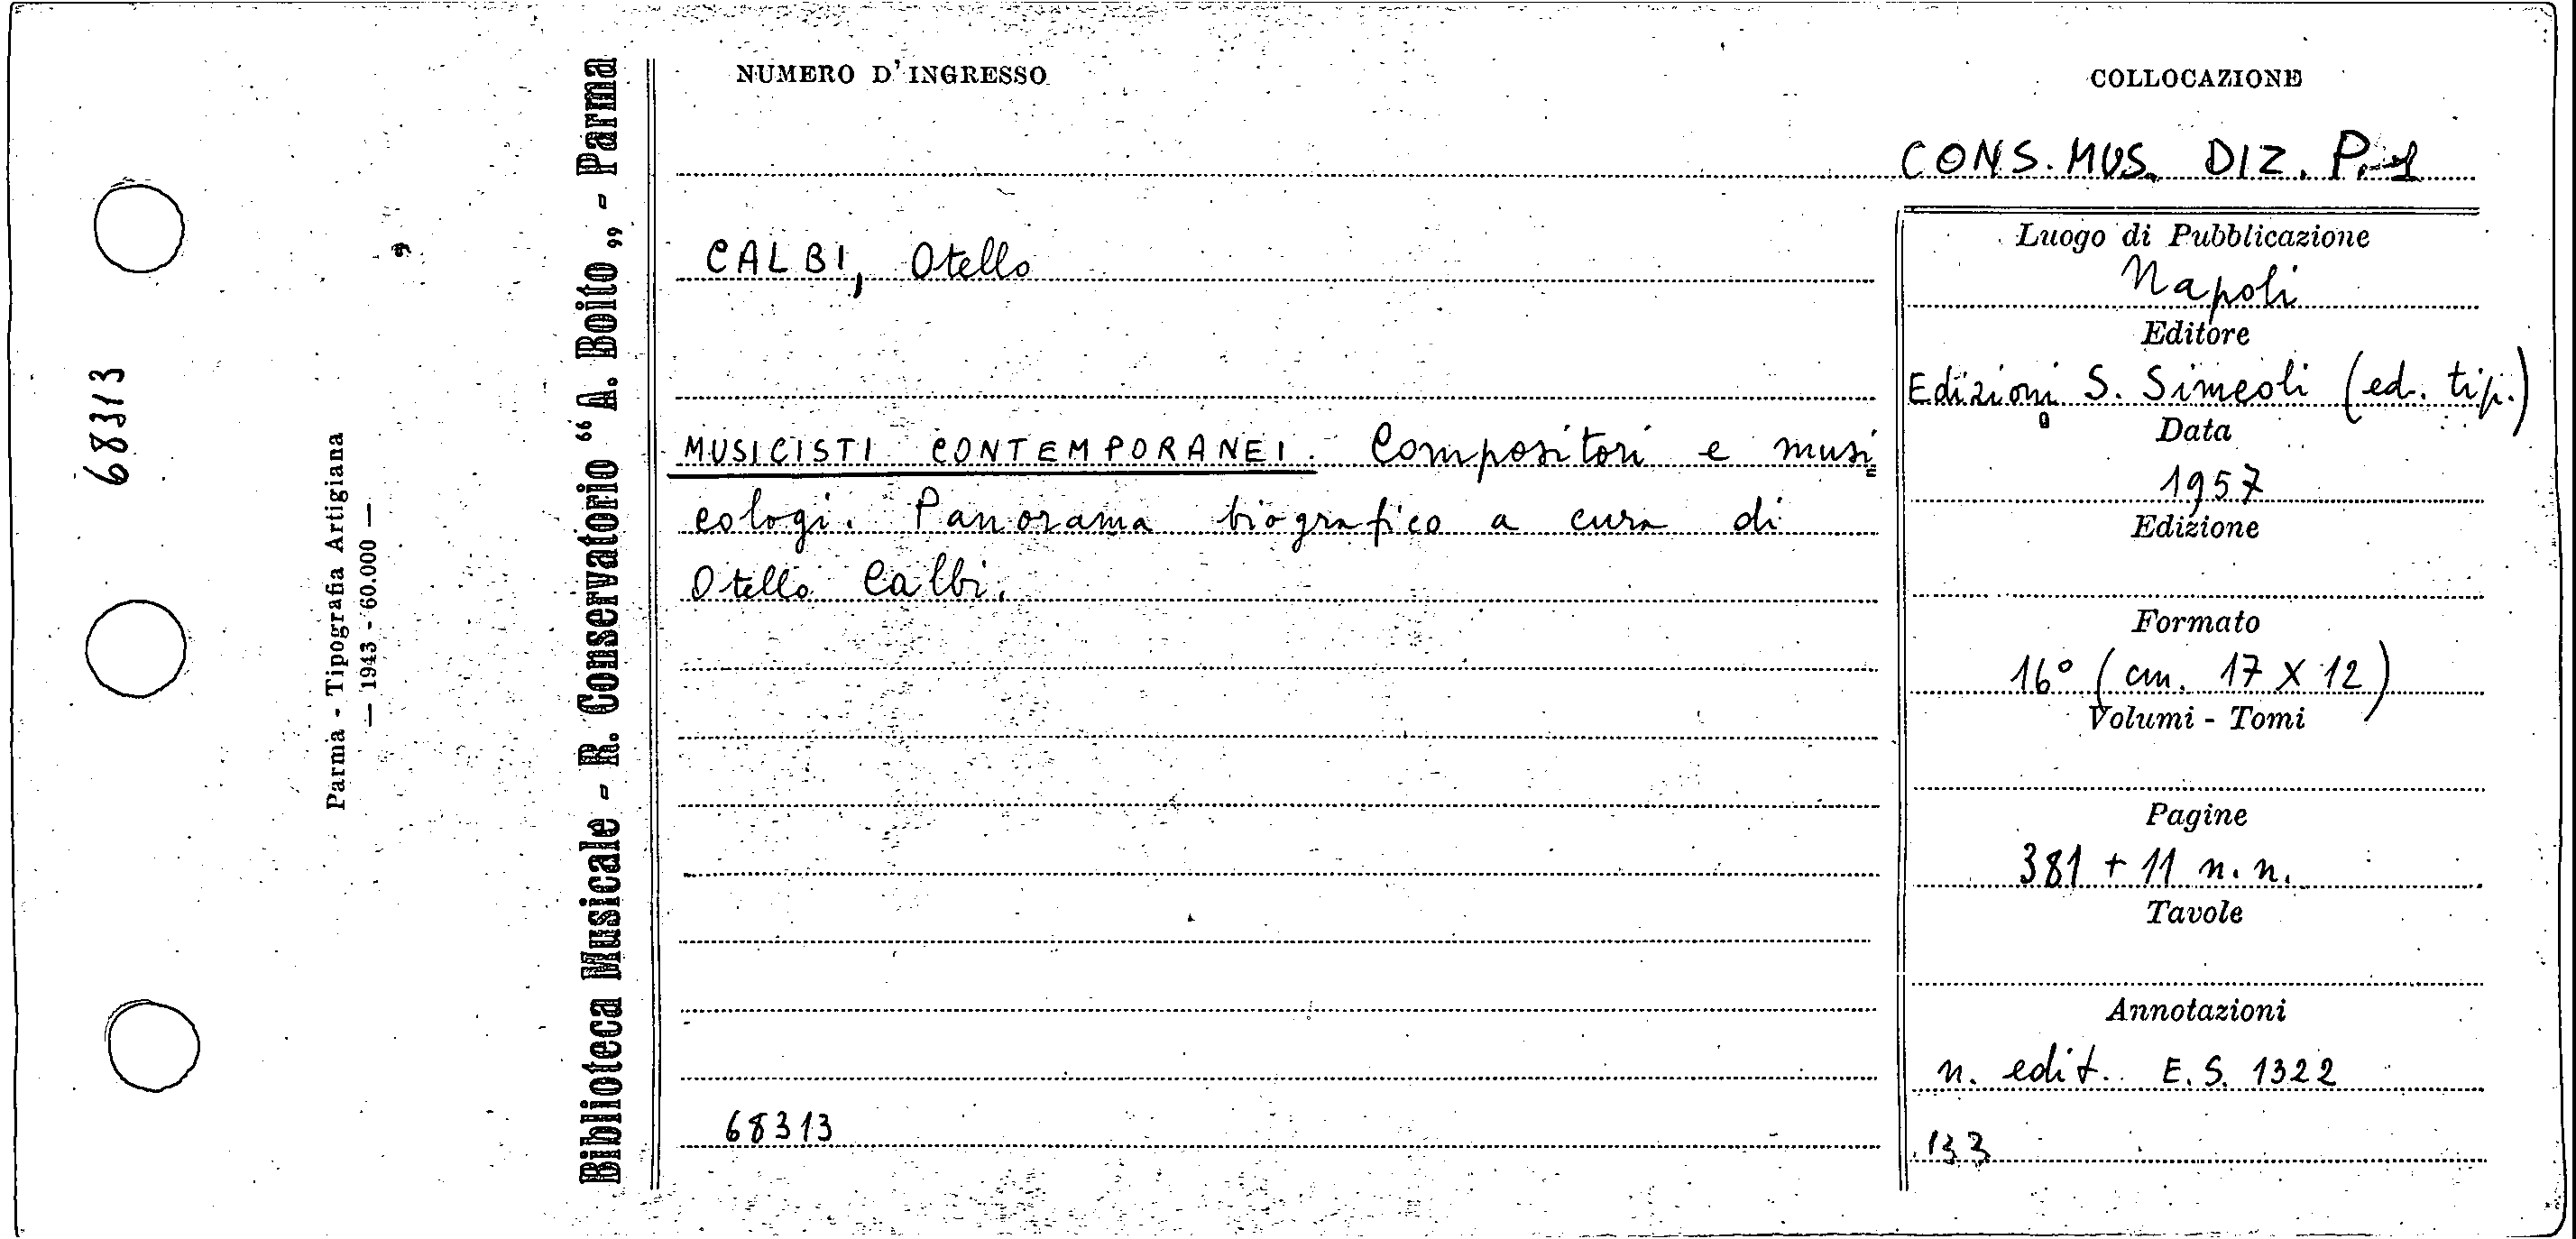 68313
Parma - Tipografia Artigiana
— 1943 - 60.000 —
Biblioteca Musicale - R. Conservatorio “ A. Boito „ - Parma
NUMERO D'INGRESSO
COLLOCAZIONE
CONS. MUS. DIZ. P.-1
CALBI, Otello
MUSICISTI CONTEMPORANEI. Compositori e musi=
cologi. Panorama biografico a cura di
Otello Calbi.
68313
Luogo di Pubblicazione
Napoli
Editore
Edizioni S. Simeoli (ed. tip.)
Data
1957
Edizione
Formato
16° (cm. 17 X 12)
Volumi - Tomi
Pagine
381 + 11 n. n.
Tavole
Annotazioni
n. edit. E. S. 1322
133